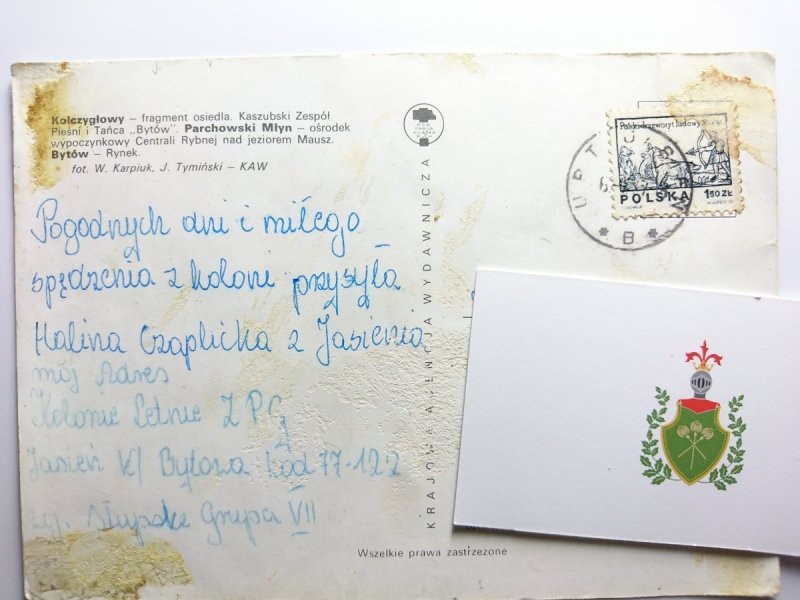 Kołczygłowy – fragment osiedla. Kaszubski Zespół
Pieśni i Tańca „Bytów". Parchowski Młyn – ośrodek
wypoczynkowy Centrali Rybnej nad jeziorem Mausz.
Bytów – Rynek.
fot. W. Karpiuk, J. Tymiński – KAW
Pogodnych dni i miłego
spędzenia z koloni przysyła
Halina Czaplicka z Jasienia
mój Adres
Kolonie Letnie Z P G
Jasień K/ Bytowa kod 77-122
woj. Słupskie Grupa VII
KRAJOWA AGENCJA WYDAWNICZA
Wszelkie prawa zastrzezone
Polski drzeworyt ludowy XVI w.
1,50 ZŁ
POLSKA
B